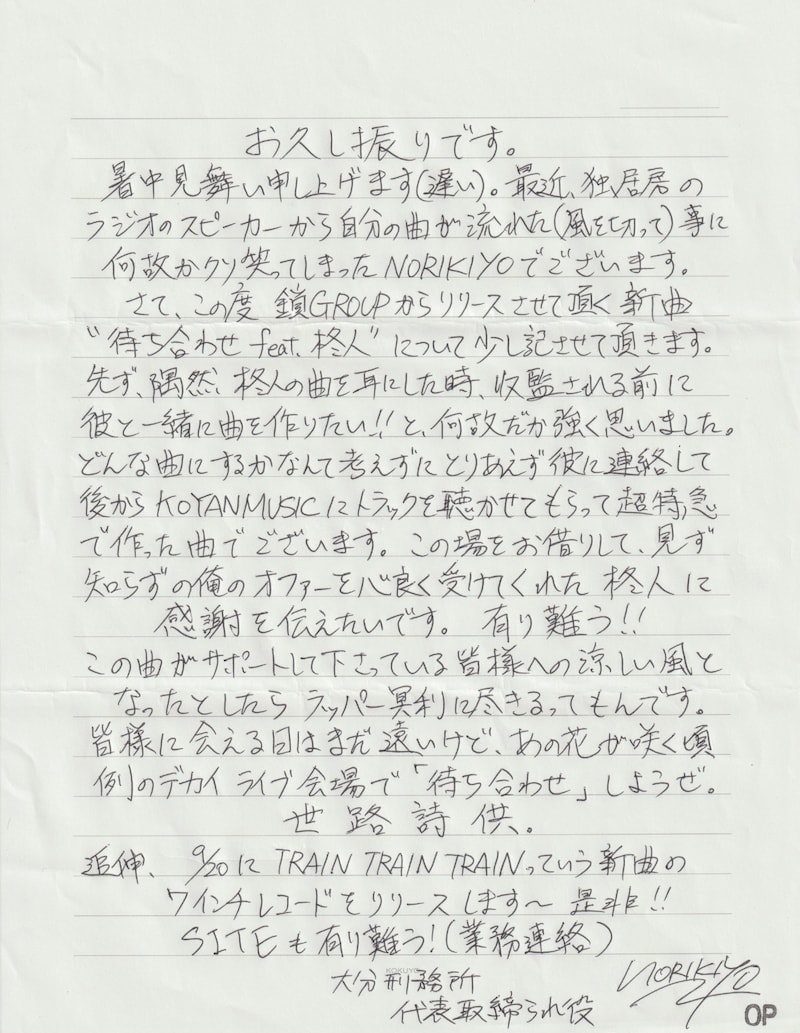 お久し振りです。
暑中見舞い申し上げます(遅い)。最近、独居房の
ラジオのスピーカーから自分の曲が流れた(風を切って)事に
何故かクソ笑ってしまったNORIKIYOでございます。
さて、この度 鎖GROUPからリリースさせて頂く新曲
"待ち合わせ feat. 柊人"について少し記させて頂きます。
先ず、隅然、柊人の曲を耳にした時、収監される前に
彼と一緒に曲を作りたい!!と、何故だか強く思いました。
どんな曲にするかなんて考えずにとりあえず彼に連絡して
後からKOYANMUSICにトラックを聴かせてもらって超特急
で作った曲でございます。この場をお借りして、見ず
知らずの俺のオファーを心良く受けてくれた 柊人に
感謝を伝えたいです。 有り難う!!
この曲がサポートして下さっている皆様への涼しい風と
なったとしたら ラッパー冥利に尽きるってもんです。
皆様に会える日はまだ遠いけど、あの花が咲く頃
例のデカイ ライブ会場で「待ち合わせ」しようぜ。
世路詩供。
追伸、 9/20に TRAIN TRAIN TRAINっていう新曲の
7インチレコードをリリースします〜 是非!!
SITEも有り難う!(業務連絡)
KOKUYO
大分刑務所
代表取締られ役
NORIKIYO
OP